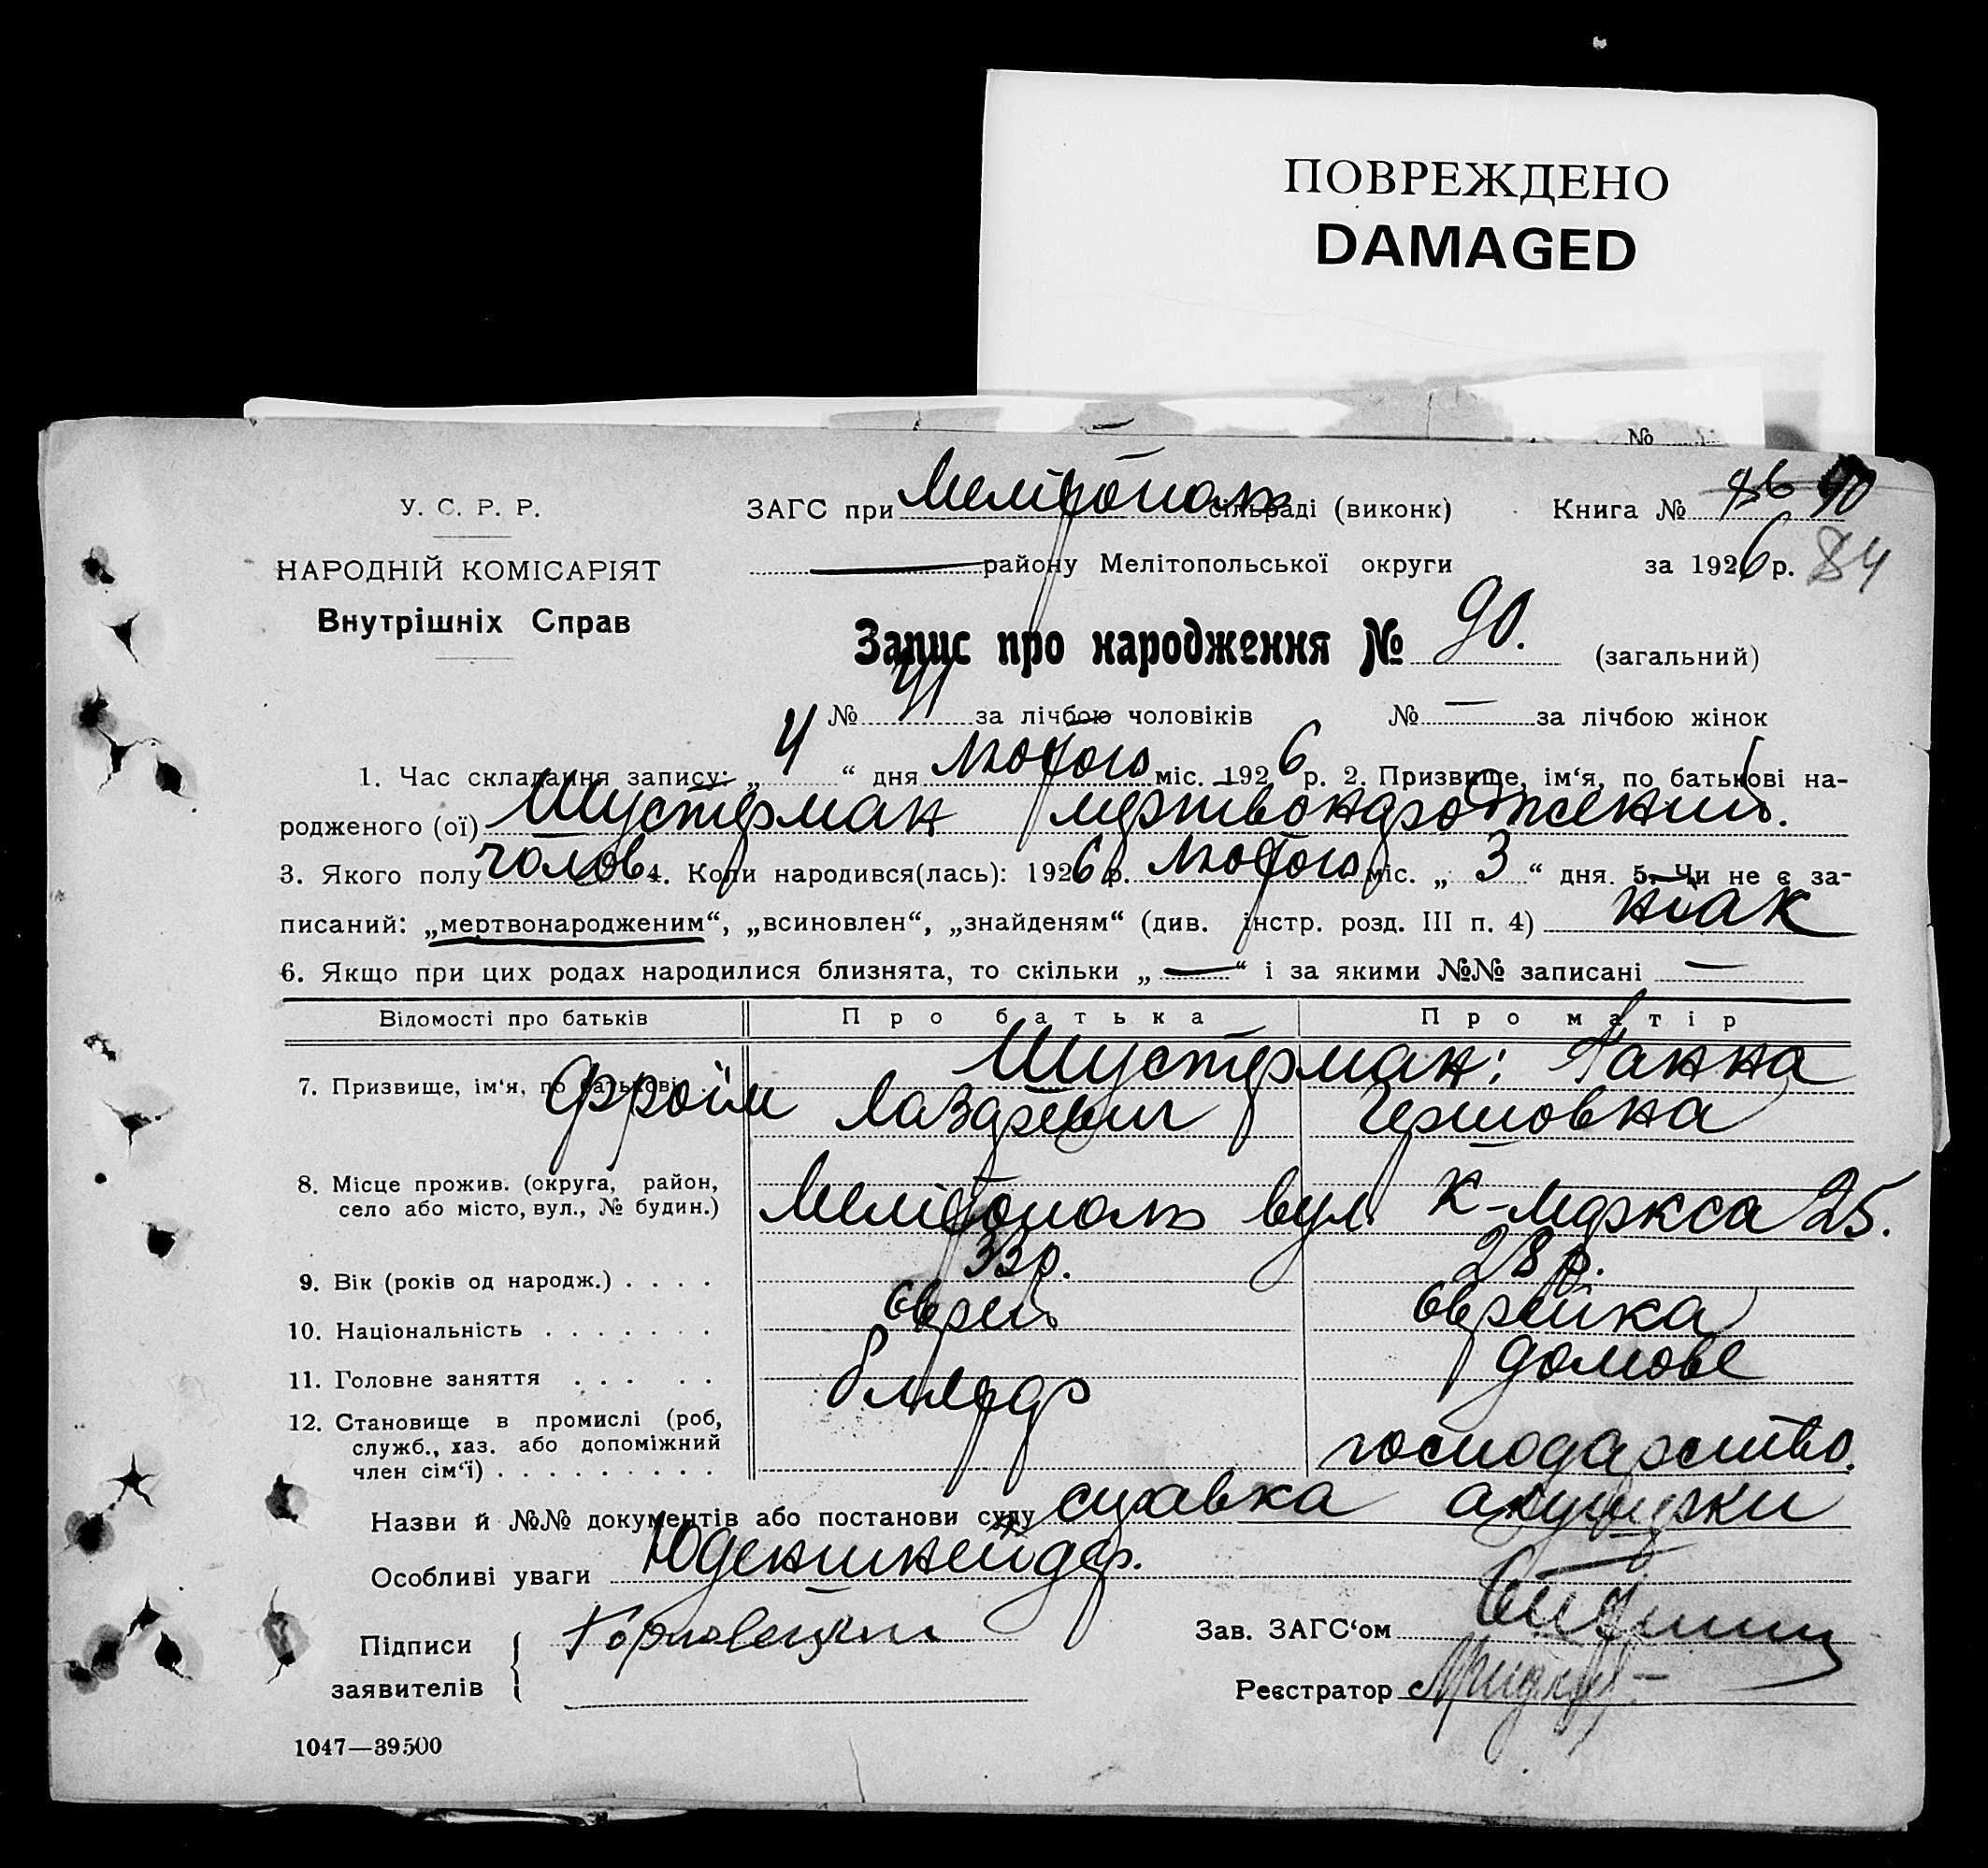 ПОВРЕЖДЕНО
DAMAGED
№
У. С. Р. Р.
ЗАГС при Мелітополь сільраді (виконк) Книга № 86 90
НАРОДНІЙ КОМІСАРІЯТ
району Мелітопольської округи за 1926 р. 84
Внутрішніх Справ
Запис про народження № 90. (загальний)
№ 41 за лічбою чоловіків № — за лічбою жінок
1. Час складання запису: „ 4 “ дня Лютого міс. 1926 р. 2. Призвище, ім‘я, по батькові на-
родженого (ої) Шустерман мертвонароджений.
3. Якого полу чолов 4. Коли народився(лась): 1926 р. Лютого міс. „ 3 “ дня. 5. Чи не є за-
писаний: „мертвонародженим“, „всиновлен“, „знайденям“ (див. інстр. розд. III п. 4)
6. Якщо при цих родах народилися близнята, то скільки „ — “ і за якими №№ записані —
Відомості про батьків Про батька Про матір
7. Призвище, ім‘я, по батькові Шустерман: Ганна
Фроїм Лазаревич Гершовна
8. Місце прожив. (округа, район,
село або місто, вул., № будин.) Мелітополь вул К-Маркса 25.
9. Вік (років од народж.) . . . . 33 р. 28 р.
10. Національність . . . . . . . Єврей Єврейка
11. Головне заняття . . . . . домове
12. Становище в промислі (роб,
служб., хаз. або допоміжний
член сім‘ї) . . . . . . . . . господарство.
Назви й №№ документів або постанови суду справка акушерки
Особливі уваги Юденшнейдер.
Підписи
заявителів
Зав. ЗАГС‘ом
Реєстратор
1047—39500